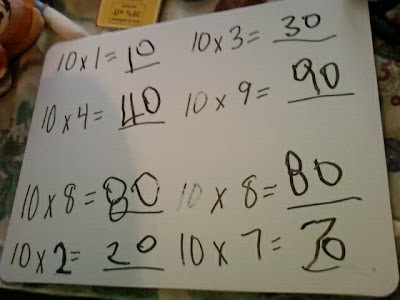 10 x 1 = 10 10 x 3 = 30
10 x 4 = 40 10 x 9 = 90
10 x 8 = 80 10 x 8 = 80
10 x 2 = 20 10 x 7 = 70